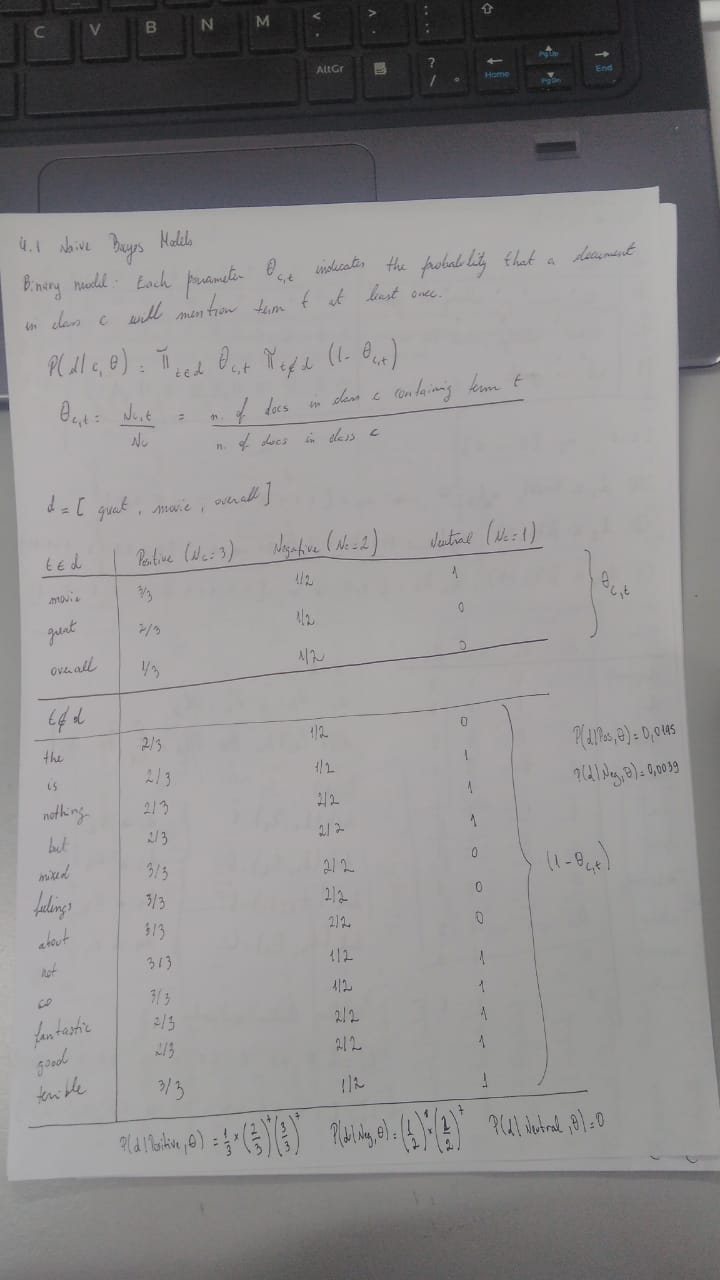 C V B N M < , > . : ; ⇧
AltGr ? / ← Home PgUp PgDn → End
4.1 Naive Bayes Models
Binary model: Each parameter θc,t indicates the probability that a document
in class c will mention term t at least once.
P(d|c, θ) = πt∈d θc,t πt∉d (1- θc,t)
θc,t = Nc,t / Nc = n. of docs in class c containing term t / n. of docs in class c
d = [ great , movie , overall ]
t∈d Positive (Nc=3) Negative (Nc=2) Neutral (Nc=1)
movie 3/3 1/2 1
great 2/3 1/2 0
overall 1/3 1/2 0
θc,t
t∉d
the 2/3 1/2 0
is 2/3 1/2 1
nothing 2/3 2/2 1
but 2/3 2/2 1
mixed 3/3 2/2 0
feelings 3/3 2/2 0
about 3/3 2/2 0
not 3/3 1/2 1
so 3/3 1/2 1
fantastic 2/3 2/2 1
good 2/3 2/2 1
terrible 3/3 1/2 1
(1-θc,t)
P(d|Pos,θ)=0,0195
P(d|Neg,θ)=0,0039
P(d|Positive,θ) = 1/3 × (2/3)^7 (3/3)^7 P(d|Neg,θ)=(1/2)^8 × (2/2)^7 P(d|Neutral,θ)=0